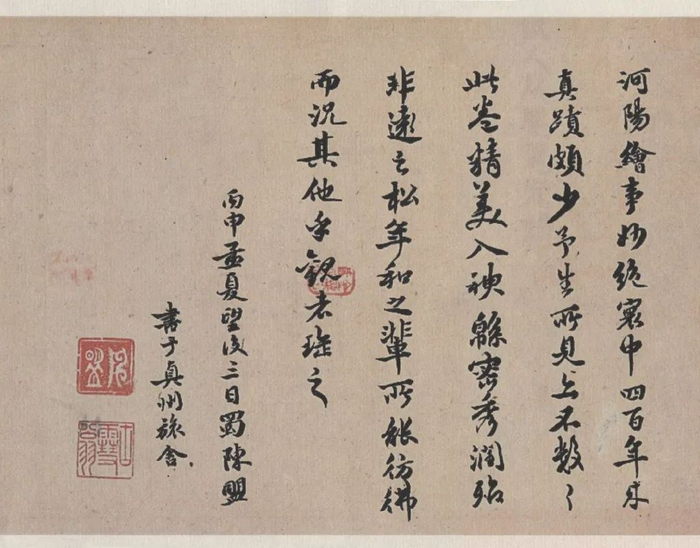 河陽繪事妙絕寰中四百年來
真蹟頗少予生所見亦不數數
此卷精美入神緜密秀潤殆
非遠之松年和之輩所能彷彿
而況其他乎觀者珍之
丙申孟夏望後三日蜀陳盟
書于真州旅舍